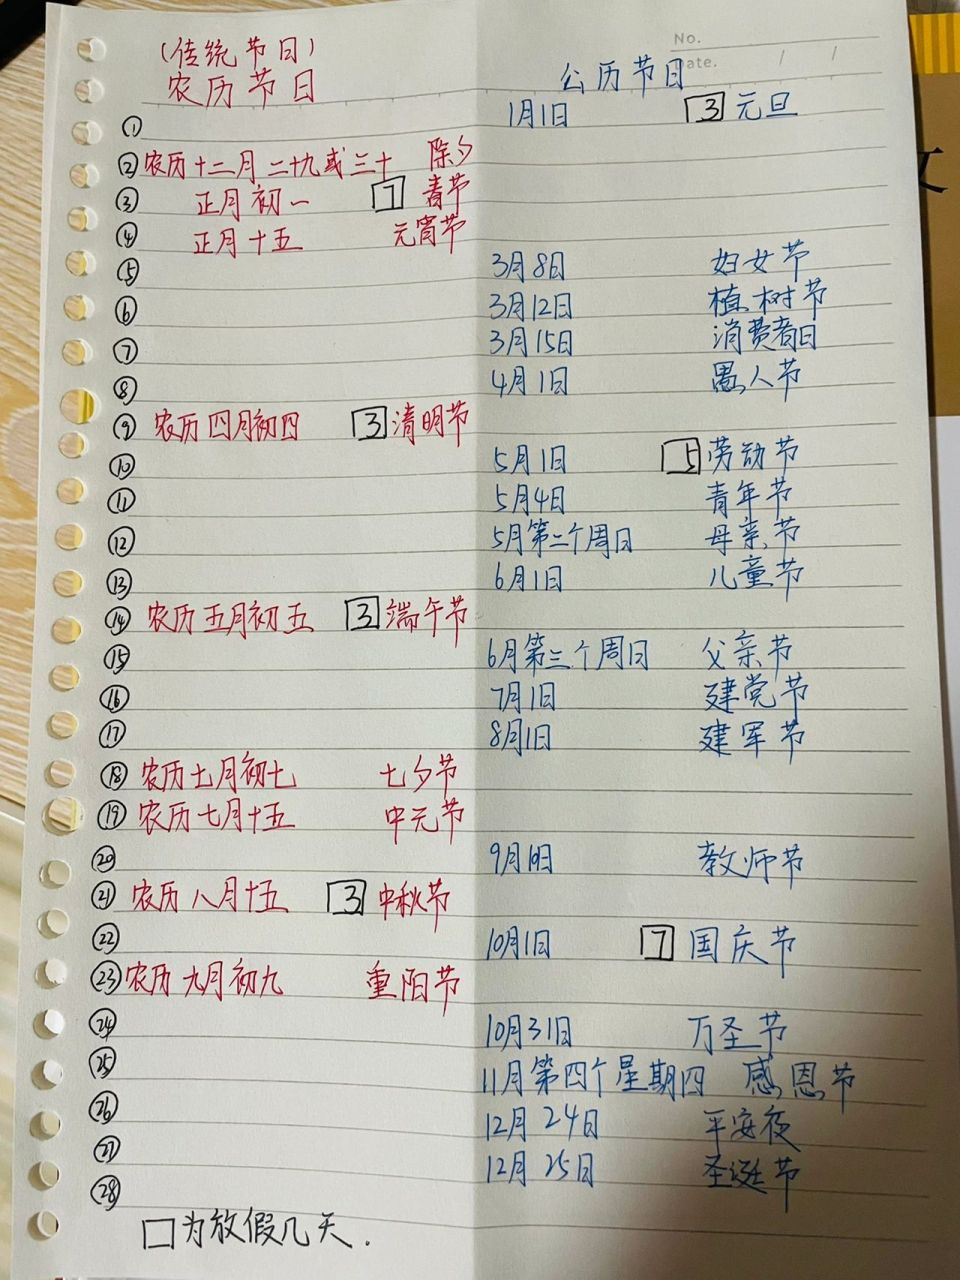 (传统节日)
农历节日
No.
Date. / /
公历节日
① 1月1日 3 元旦
② 农历十二月二十九或三十 除夕
③ 正月初一 7 春节
④ 正月十五 元宵节
⑤ 3月8日 妇女节
⑥ 3月12日 植树节
⑦ 3月15日 消费者日
⑧ 4月1日 愚人节
⑨ 农历四月初四 3 清明节
⑩ 5月1日 5 劳动节
⑪ 5月4日 青年节
⑫ 5月第二个周日 母亲节
⑬ 6月1日 儿童节
⑭ 农历五月初五 3 端午节
⑮ 6月第三个周日 父亲节
⑯ 7月1日 建党节
⑰ 8月1日 建军节
⑱ 农历七月初七 七夕节
⑲ 农历七月十五 中元节
⑳ 9月10日 教师节
㉑ 农历八月十五 3 中秋节
㉒ 10月1日 7 国庆节
㉓ 农历九月初九 重阳节
㉔ 10月31日 万圣节
㉕ 11月第四个星期四 感恩节
㉖ 12月24日 平安夜
㉗ 12月25日 圣诞节
㉘
□为放假几天.